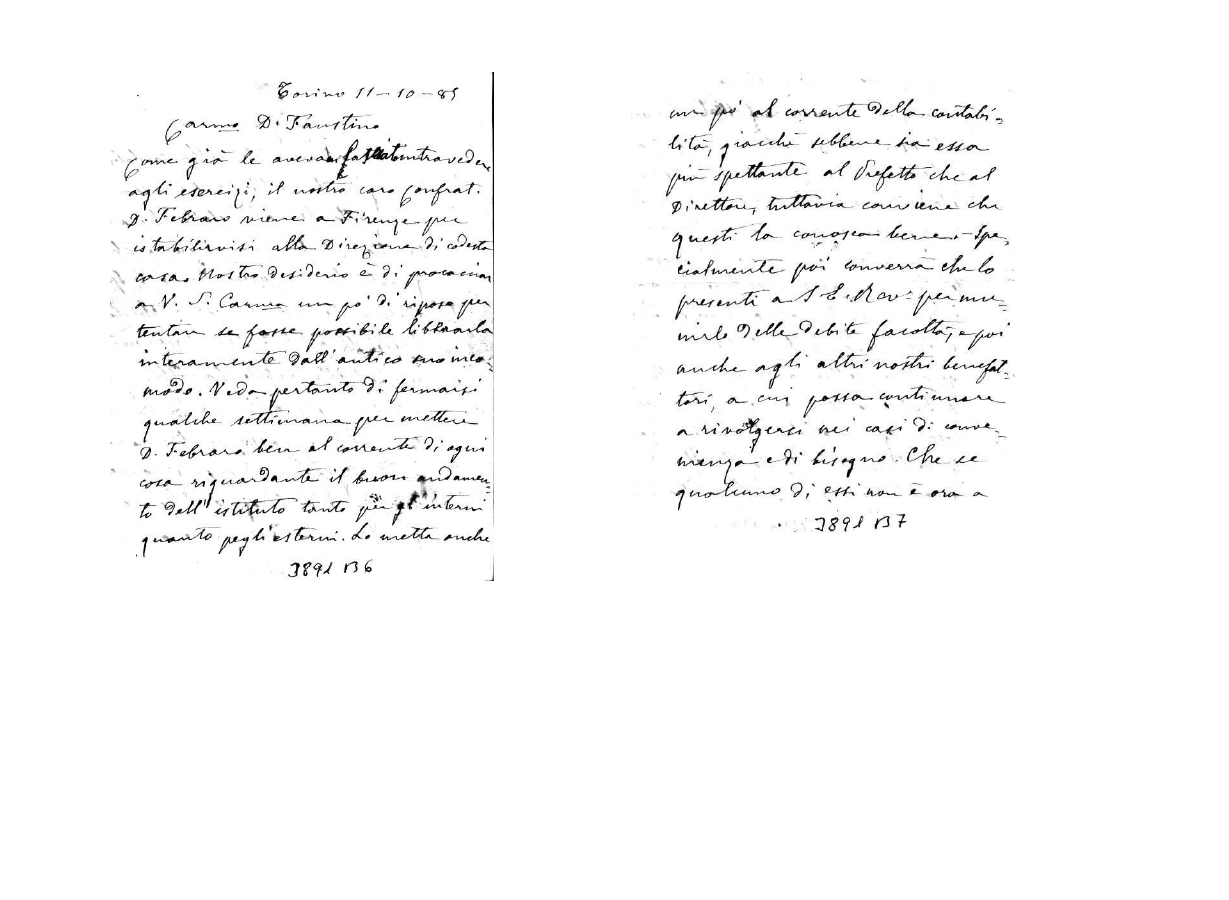 Torino 11-10-85
Carmo D. Faustino
Come già le avevam fatto intravedere
agli esercizi, il nostro caro Confrat.
D. Febraro viene a Firenze per
istabilirvisi alla Direzione di codesta
casa. Nostro desiderio è di procacciar
a V. S. Carma un pò di riposo per
tentar se fosse possibile liberarla
interamente dall'antico suo inco-
modo. Veda pertanto di fermarsi
qualche settimana per mettere
D. Febraro ben al corrente di ogni
cosa riguardante il buon andamen-
to dell'istituto tanto per gl'interni
quanto pegli esterni. Lo metta anche
3891 B6
un pò al corrente della contabi-
lità, giacchè sebbene sia essa
più spettante al Prefetto che al
Direttore, tuttavia conviene che
questi la conosca bene. Spe-
cialmente poi converrà che lo
presenti a S. E. Rev. per mu-
nirlo delle debite facoltà, e poi
anche agli altri nostri benefat-
tori, a cui possa continuare
a rivolgersi nei casi di conve-
nienza e di bisogno. Che se
qualcuno di essi non è ora a
3891 B7